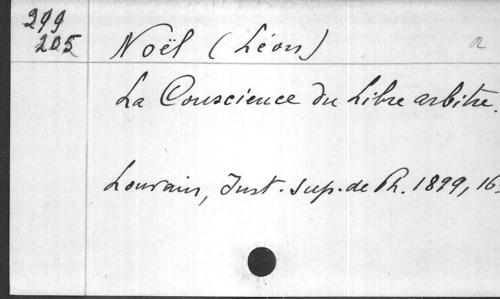 299
205
Noël (Léon) a
La Conscience du Libre arbitre.
Louvain, Inst. sup. de Ph. 1899, 16